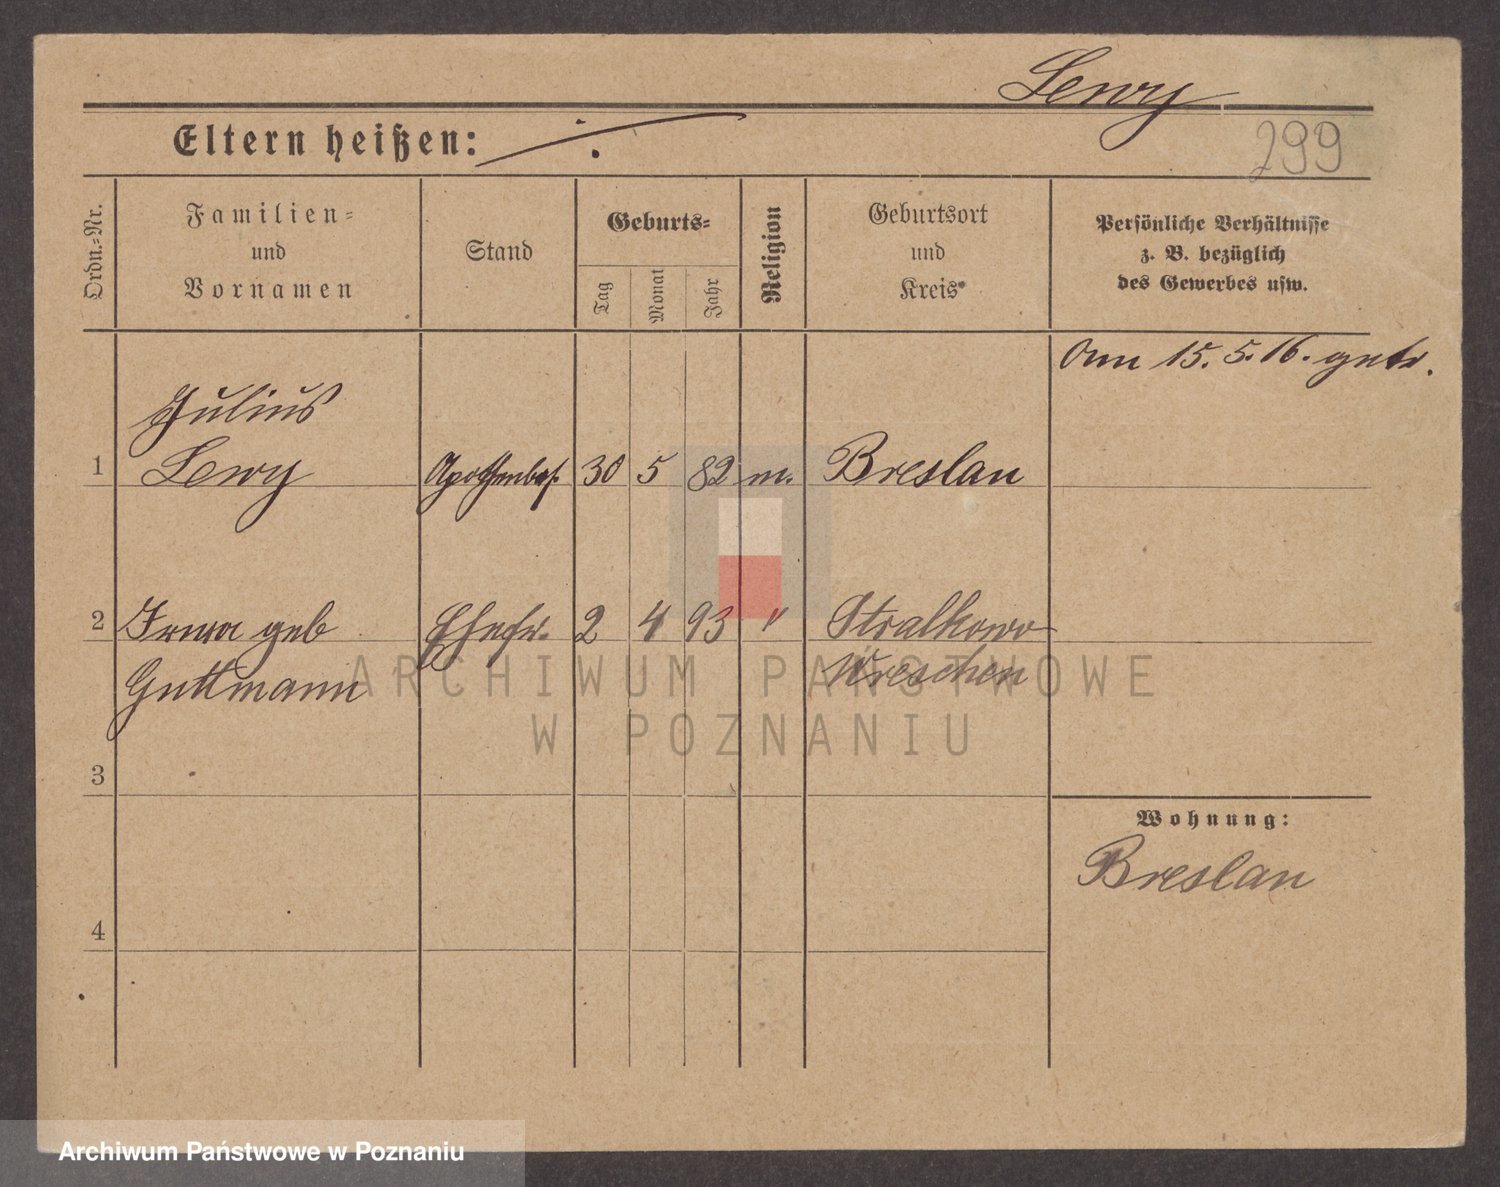 Lewy
Eltern heißen: ./.
299
Ordn.-Nr.
Familien-
und
Vornamen
Stand
Geburts-
Tag
Monat
Jahr
Religion
Geburtsort
und
Kreis
Persönliche Verhältnisse
z. B. bezüglich
des Gewerbes usw.
Am 15. 5. 16. getr.
Julius
1 Lewy 30 5 82 m. Breslau
2 geb Ehefr. 2 4 93 " Stralkowo
Guttmann Wreschen
ARCHIWUM PAŃSTWOWE
W POZNANIU
3
Wohnung:
Breslau
4
Archiwum Państwowe w Poznaniu